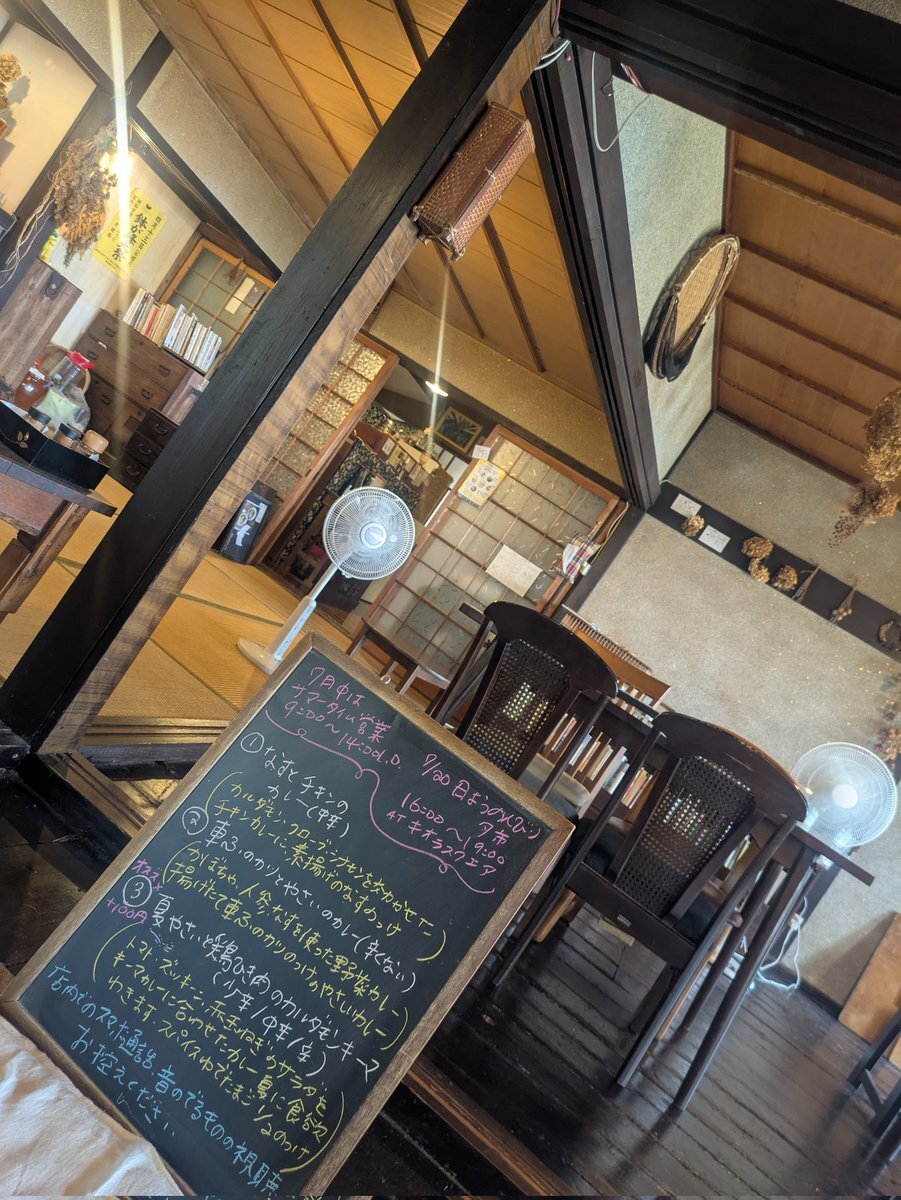 7月中は
サマータイム営業
9:00〜14:00L.O.
7/20日ようのんびり
夕席
16:00〜19:00
AT キオラスクエア
① なすとチキンの
カレー(中辛)
(カルダモン、クローブ、シナモンをきかせた
チキンカレーに、素揚げのなすのっけ)
② 車ふのカツとやさいのカレー(辛くない)
(かぼちゃ、人参、なすを使った野菜カレー
揚げたて車ふのカツのっけやさいカレー)
オススメ
+100円
③ 夏やさいと鶏ひき肉のカルダモンキーマ
(少辛/中辛/辛)
(トマト・ズッキーニ・赤玉ねぎのサラダを
キーマカレーに合わせたカレー 夏に食欲
わきます スパイスゆでたまご1/2のっけ)
店内でのスマホ通話、音のでるものの視聴
お控えください